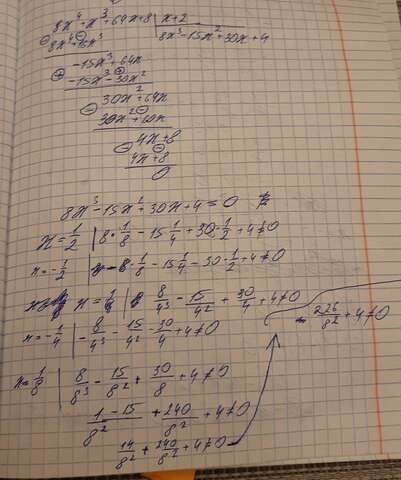 8x⁴+x³+64x+8 | x+2
8x⁴+16x³ 8x³-15x²+30x+4
-15x³+64x
-15x³-30x²
30x²+64x
30x²+60x
4x+8
4x+8
0
8x³-15x²+30x+4=0
x=1/2 | 8·1/8-15·1/4+30·1/2+4≠0
x=-1/2 | -8·1/8-15·1/4-30·1/2+4≠0
x=1/4 | 8/4³-15/4²+30/4+4≠0
x=-1/4 | -8/4³-15/4²-30/4+4≠0
-226/8²+4≠0
x=1/8 | 8/8³-15/8²+30/8+4≠0
1-15/8²+240/8²+4≠0
14/8²+240/8²+4≠0